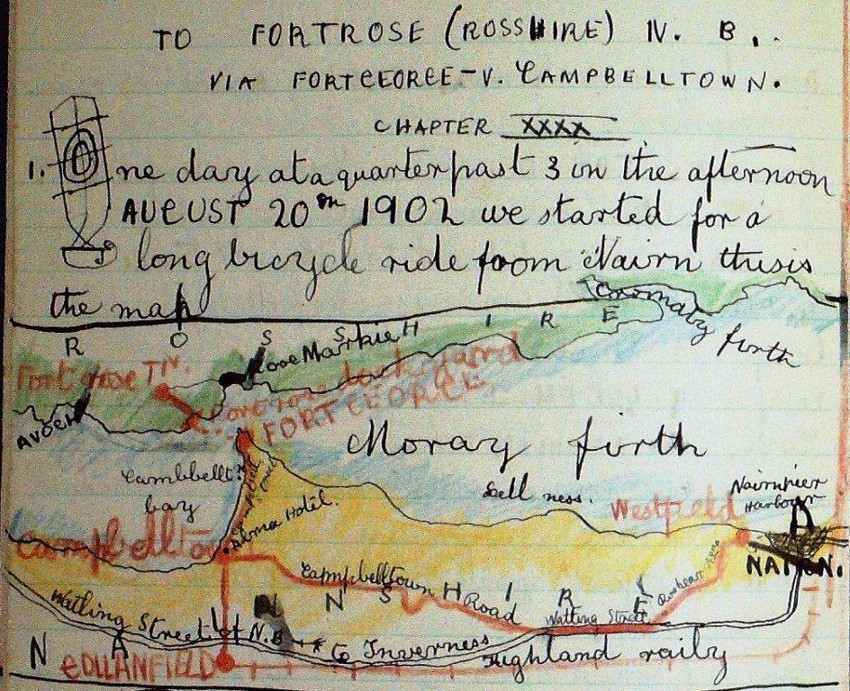 TO FORTROSE (ROSSHIRE) N. B.
VIA FORTGEORGE-V. CAMPBELLTOWN.
CHAPTER XXXX
1. One day at a quarter past 3 in the afternoon
AUGUST 20TH 1902 we started for a
long bicycle ride from Nairn this is
the map
Cromaty firth
R O S S H I R E
Rose Markie
Fortrose TN.
FORTGEORGE
AVOCH
Moray firth
Cambbellt.
bay
Sell ness.
Westfield
Nairn pier
Harbour
Alma Hotel.
NAIRN.
Campbelltown Road
N A I R N S H I R E
Watling Street
Watling Street N.B
to Inverness
GOLLANFIELD
Highland raily